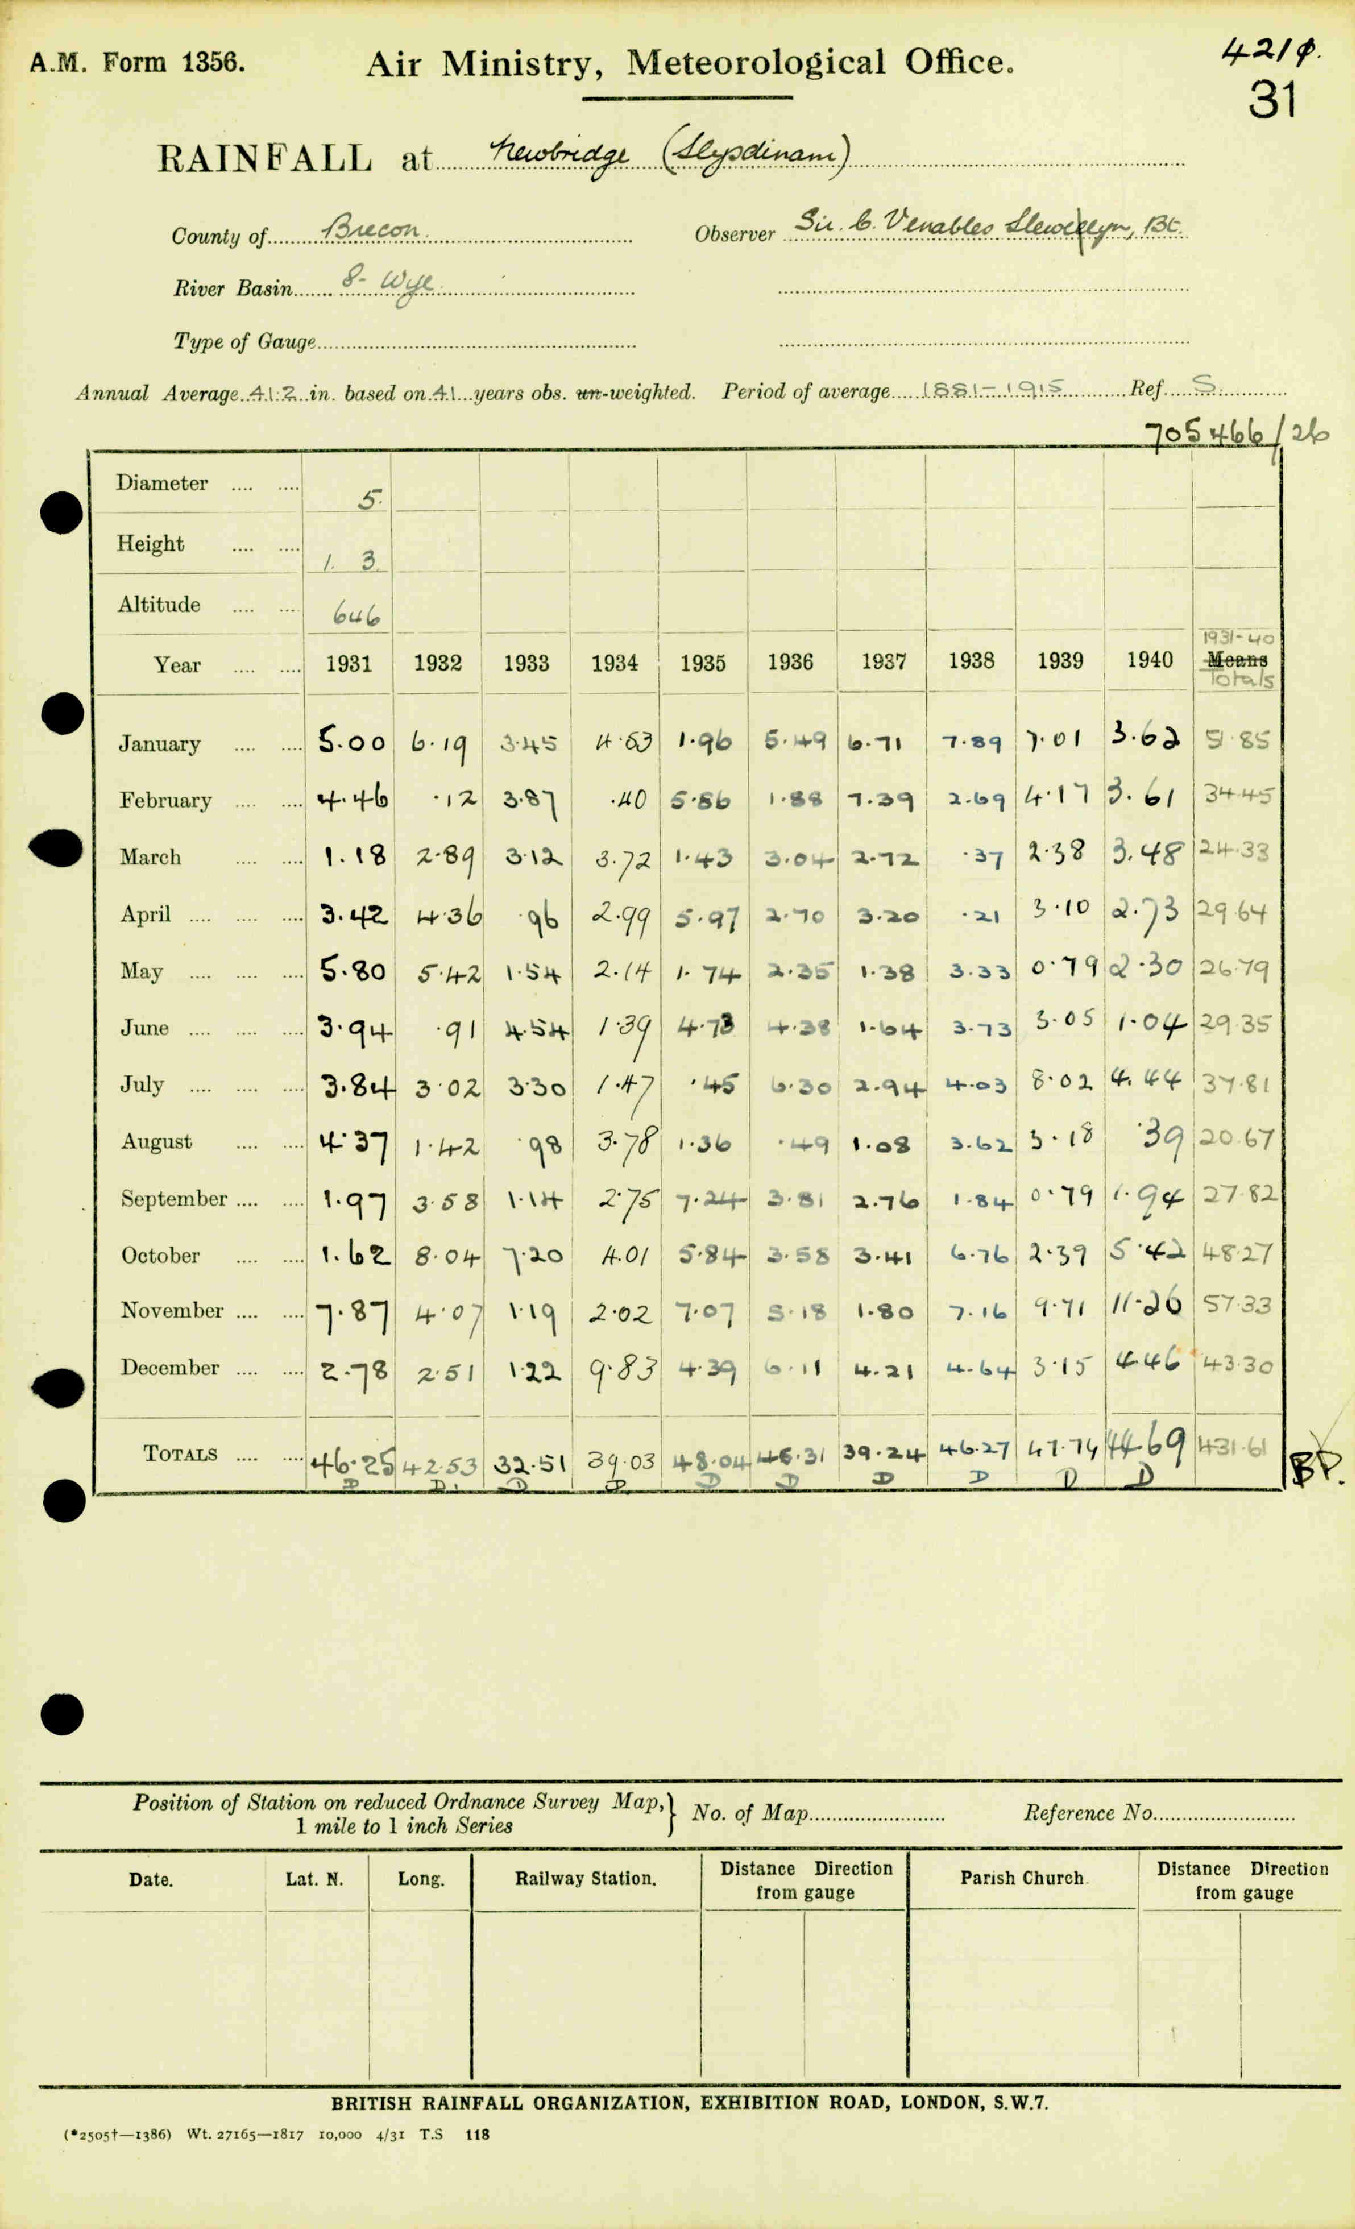 A.M. Form 1356.
Air Ministry, Meteorological Office.
421φ.
31
RAINFALL at Newbridge (Llysdinam)
County of Brecon. Observer Sir. C. Venables Llewellyn, Bt.
River Basin 8- Wye
Type of Gauge
Annual Average 41.2 in. based on 41 years obs. un-weighted. Period of average 1881-1915 Ref. S.
705466/26
Diameter .... .... 5.
Height .... .... 1. 3.
Altitude .... .... 646
Year .... .... 1931 1932 1933 1934 1935 1936 1937 1938 1939 1940 1931-40 Means Totals
January .... .... 5.00 6.19 3.45 4.53 1.96 5.49 6.71 7.89 7.01 3.62 51.85
February .... .... 4.46 .12 3.87 .40 5.86 1.88 7.39 2.69 4.17 3.61 34.45
March .... .... 1.18 2.89 3.12 3.72 1.43 3.04 2.72 .37 2.38 3.48 24.33
April .... .... .... 3.42 4.36 .96 2.99 5.97 2.70 3.20 .21 3.10 2.73 29.64
May .... .... .... 5.80 5.42 1.54 2.14 1.74 2.35 1.38 3.33 0.79 2.30 26.79
June .... .... .... 3.94 .91 4.54 1.39 4.73 4.38 1.64 3.73 3.05 1.04 29.35
July .... .... .... 3.84 3.02 3.30 1.47 .45 6.30 2.94 4.03 8.02 4.44 37.81
August .... .... 4.37 1.42 .98 3.78 1.36 .49 1.08 3.62 3.18 .39 20.67
September .... .... 1.97 3.58 1.14 2.75 7.24 3.81 2.76 1.84 0.79 1.94 27.82
October .... .... 1.62 8.04 7.20 4.01 5.84 3.58 3.41 6.76 2.39 5.42 48.27
November .... .... 7.87 4.07 1.19 2.02 7.07 5.18 1.80 7.16 9.71 11.26 57.33
December .... .... 2.78 2.51 1.22 9.83 4.39 6.11 4.21 4.64 3.15 4.46 43.30
TOTALS .... .... 46.25 42.53 32.51 39.03 48.04 45.31 39.24 46.27 47.74 44.69 431.61
D D. D D D D D D D D
BP.
Position of Station on reduced Ordnance Survey Map, 1 mile to 1 inch Series } No. of Map Reference No.
Date. Lat. N. Long. Railway Station. Distance Direction from gauge Parish Church Distance Direction from gauge
BRITISH RAINFALL ORGANIZATION, EXHIBITION ROAD, LONDON, S.W.7.
(*2505†—1386) Wt. 27165—1817 10,000 4/31 T.S 118